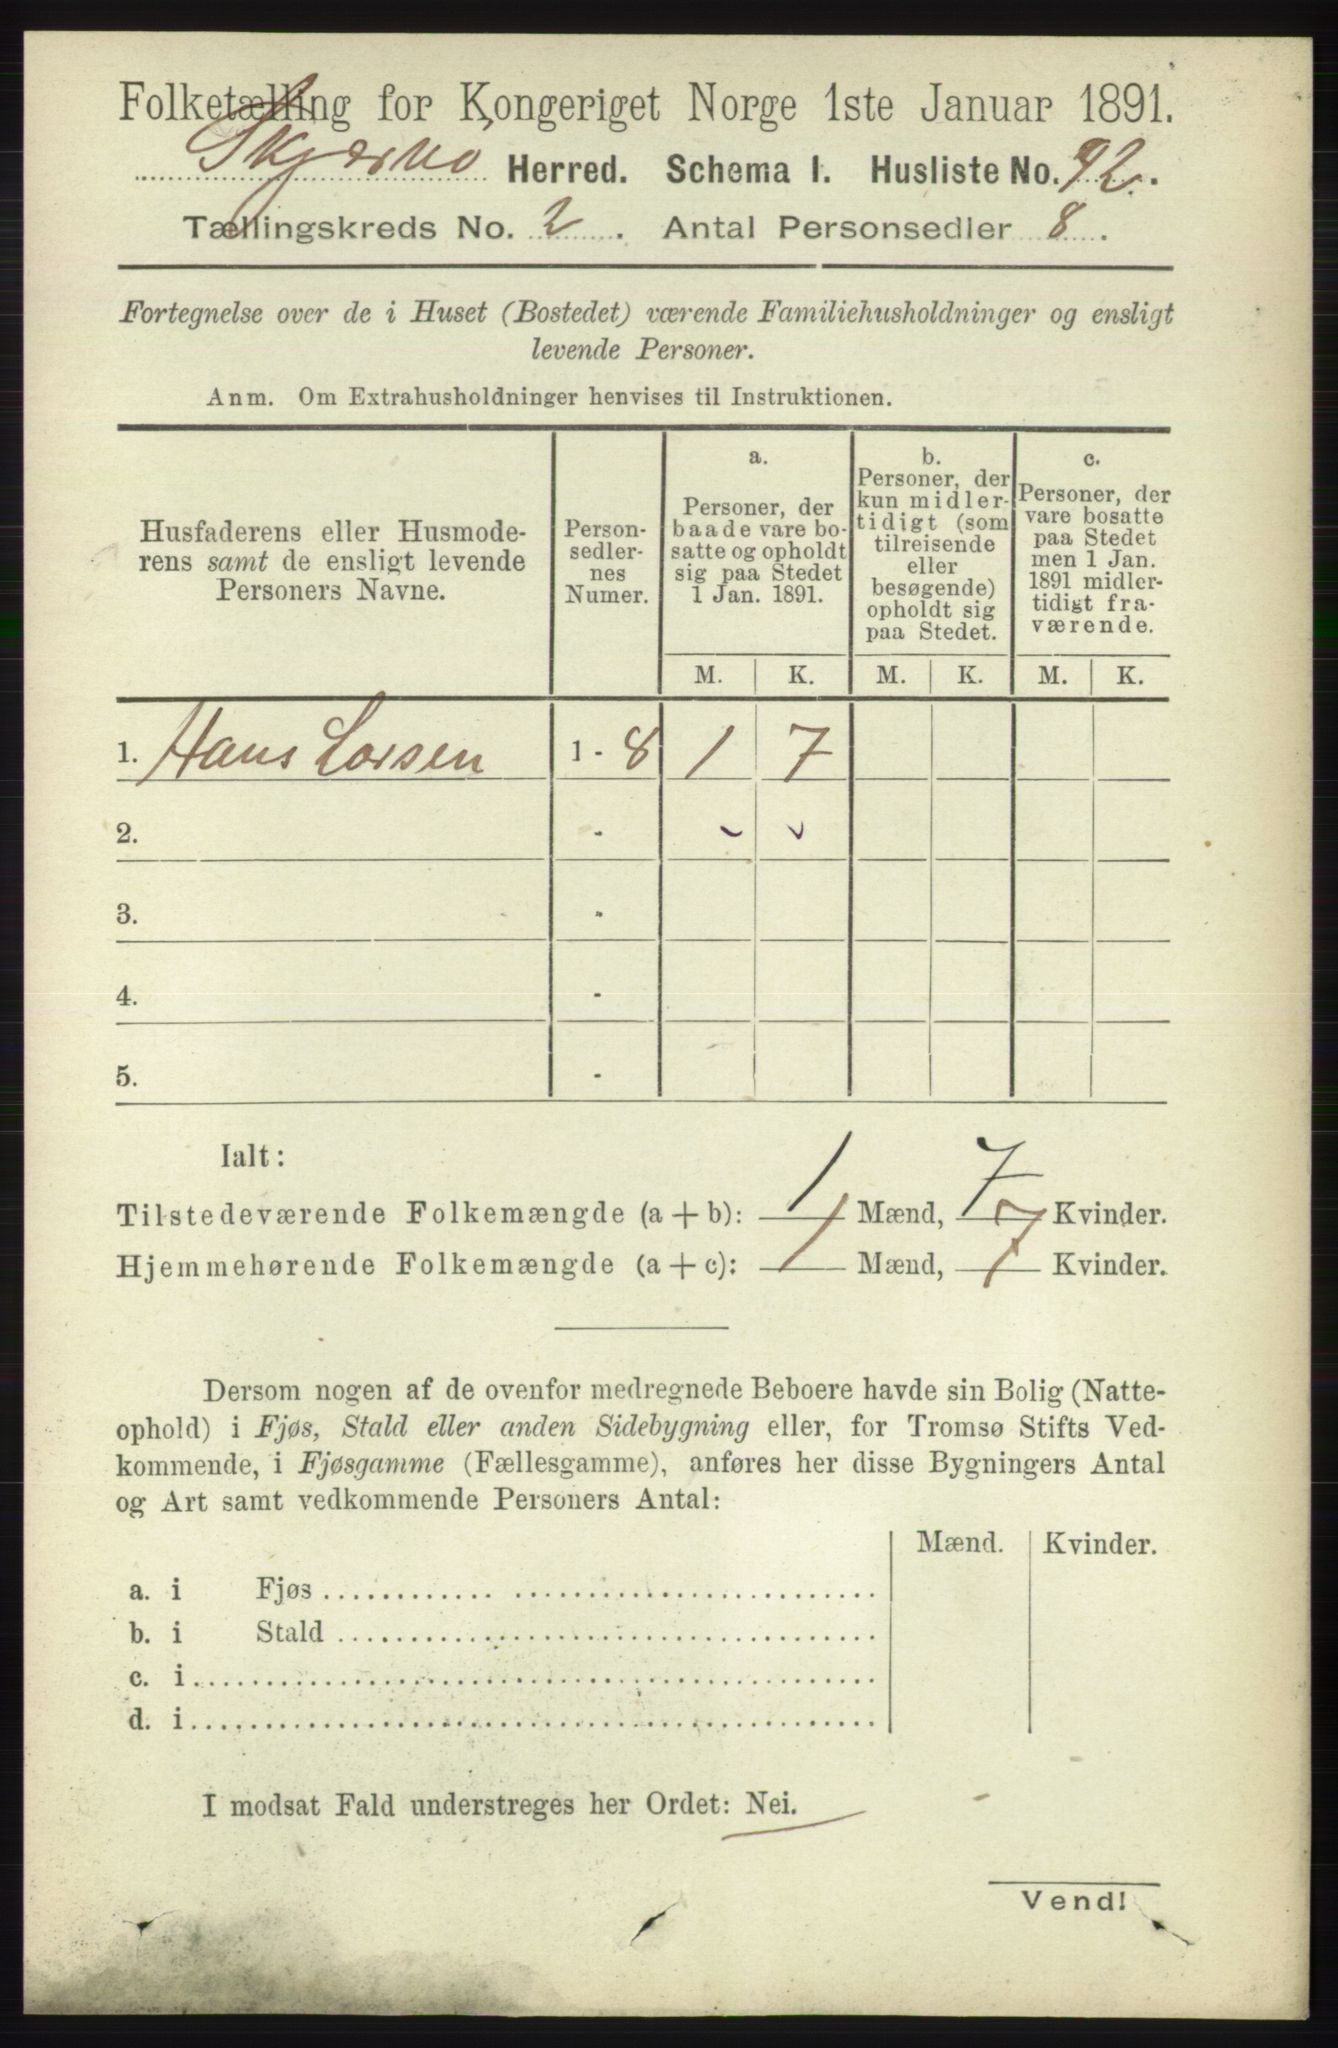 Folketælling for Kongeriget Norge 1ste Januar 1891.
Skjærvø Herred. Schema I. Husliste No. 92.
Tællingskreds No. 2. Antal Personsedler 8.
Fortegnelse over de i Huset (Bostedet) værende Familiehusholdninger og ensligt
levende Personer.
Anm. Om Extrahusholdninger henvises til Instruktionen.
Husfaderens eller Husmode-
rens samt de ensligt levende
Personers Navne.
Person-
sedler-
nes
Numer.
a.
Personer, der
baade vare bo-
satte og opholdt
sig paa Stedet
1 Jan. 1891.
b.
Personer, der
kun midler-
tidigt (som
tilreisende
eller
besøgende)
opholdt sig
paa Stedet.
c.
Personer, der
vare bosatte
paa Stedet
men 1 Jan.
1891 midler-
tidigt fra-
værende.
M. K. M. K. M. K.
1. Hans Larsen 1 - 8 1 7
2. -
3. -
4. -
5. -
Ialt: 1 7
Tilstedeværende Folkemængde (a + b): 1 Mænd, 7 Kvinder.
Hjemmehørende Folkemængde (a + c): 1 Mænd, 7 Kvinder.
Dersom nogen af de ovenfor medregnede Beboere havde sin Bolig (Natte-
ophold) i Fjøs, Stald eller anden Sidebygning eller, for Tromsø Stifts Ved-
kommende, i Fjøsgamme (Fællesgamme), anføres her disse Bygningers Antal
og Art samt vedkommende Personers Antal:
Mænd. Kvinder.
a. i Fjøs
b. i Stald
c. i
d. i
I modsat Fald understreges her Ordet: Nei.
Vend!